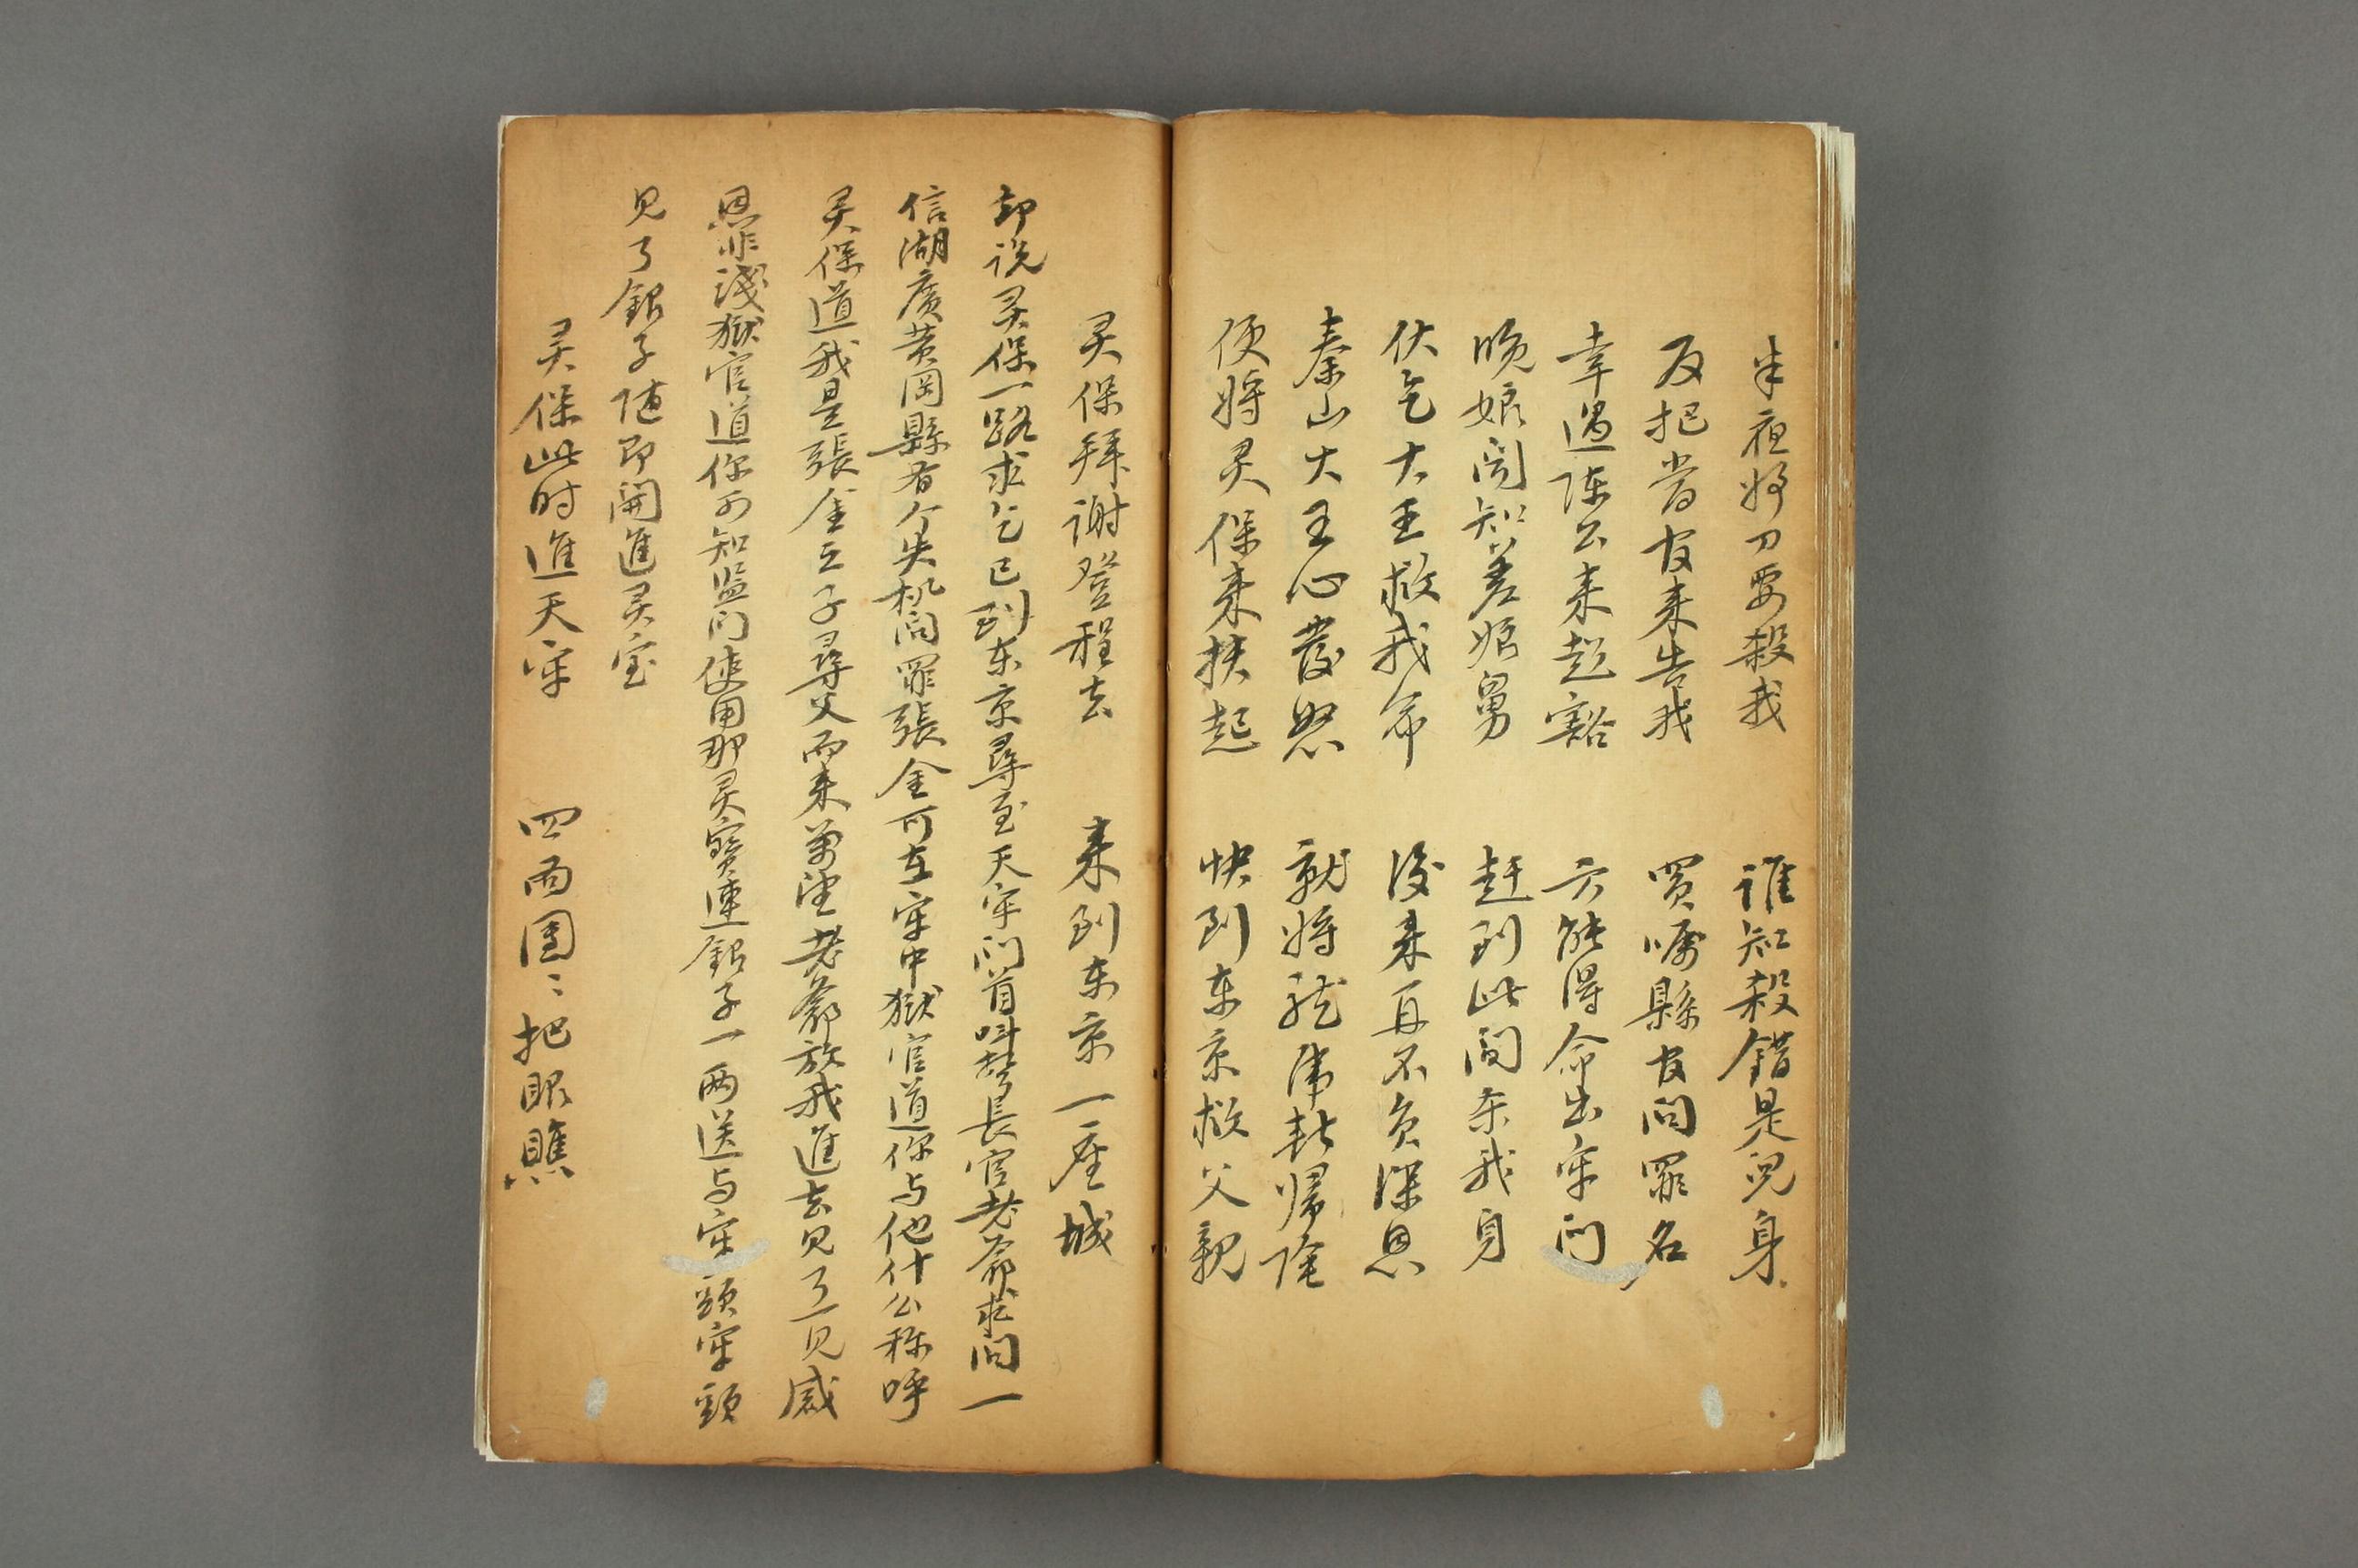 半夜將刀要殺我　誰知殺錯是兒身
反把當官来告我　買嘱縣官問罪名
幸遇陈公来超豁　方能得命出牢门
晚娘闻知差娘舅　赶到此间杀我身
伏乞大王救我命　後来再不負深恩
秦山大王心發怒　就将 归陰
便将灵保来扶起　快到东京救父親
灵保拜谢登程去　来到东京一座城
却说灵保一路求乞已到东京尋至天牢门首叫声長官老爺求问一
信湖廣黄岡縣有个失机问罪張金可在牢中獄官道你与他什公称呼
灵保道我是張金之子尋父而来萬望老爺放我進去见了一见感
恩非淺獄官道你可知监门使用那灵寶連銀子一两送与牢頭牢頭
见了銀子随即開進灵宝
灵保此时進天牢　四面團〻把眼瞧